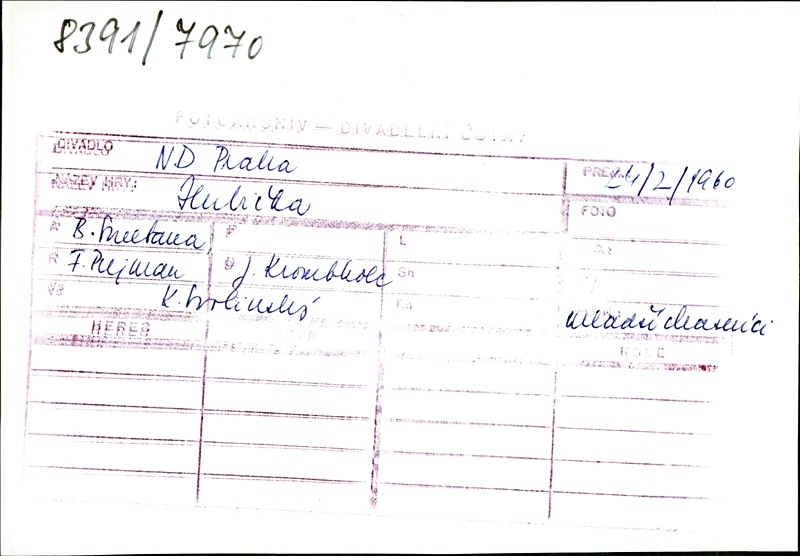 8391/7970
FOTOARCHIV — DIVADELNÍ ÚSTAV
DIVADLO ND Praha PREM. 24/2/1960
NÁZEV HRY: Hubička FOTO
A B. Smetana P L
R F. Pujman D J. Krombholc Sh
Vš K. Svolinský Ch mladší chasníci
HEREC ROLE